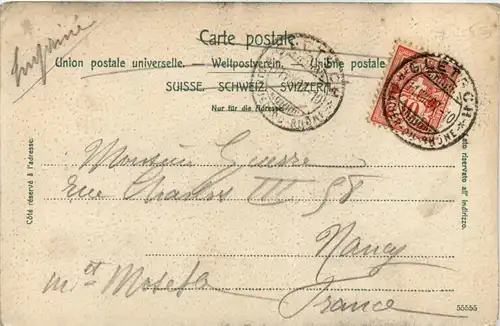 Imprimé
Carte postale.
Union postale universelle. — Weltpostverein. — Unione postale
SUISSE. SCHWEIZ. SVIZZERA.
Nur für die Adresse.
GLETSCH
GLETSCH
Côté réservé à l'adresse.
riservato all' indirizzo.
Monsieur
Rue Charles III 58
Nancy
France
55555